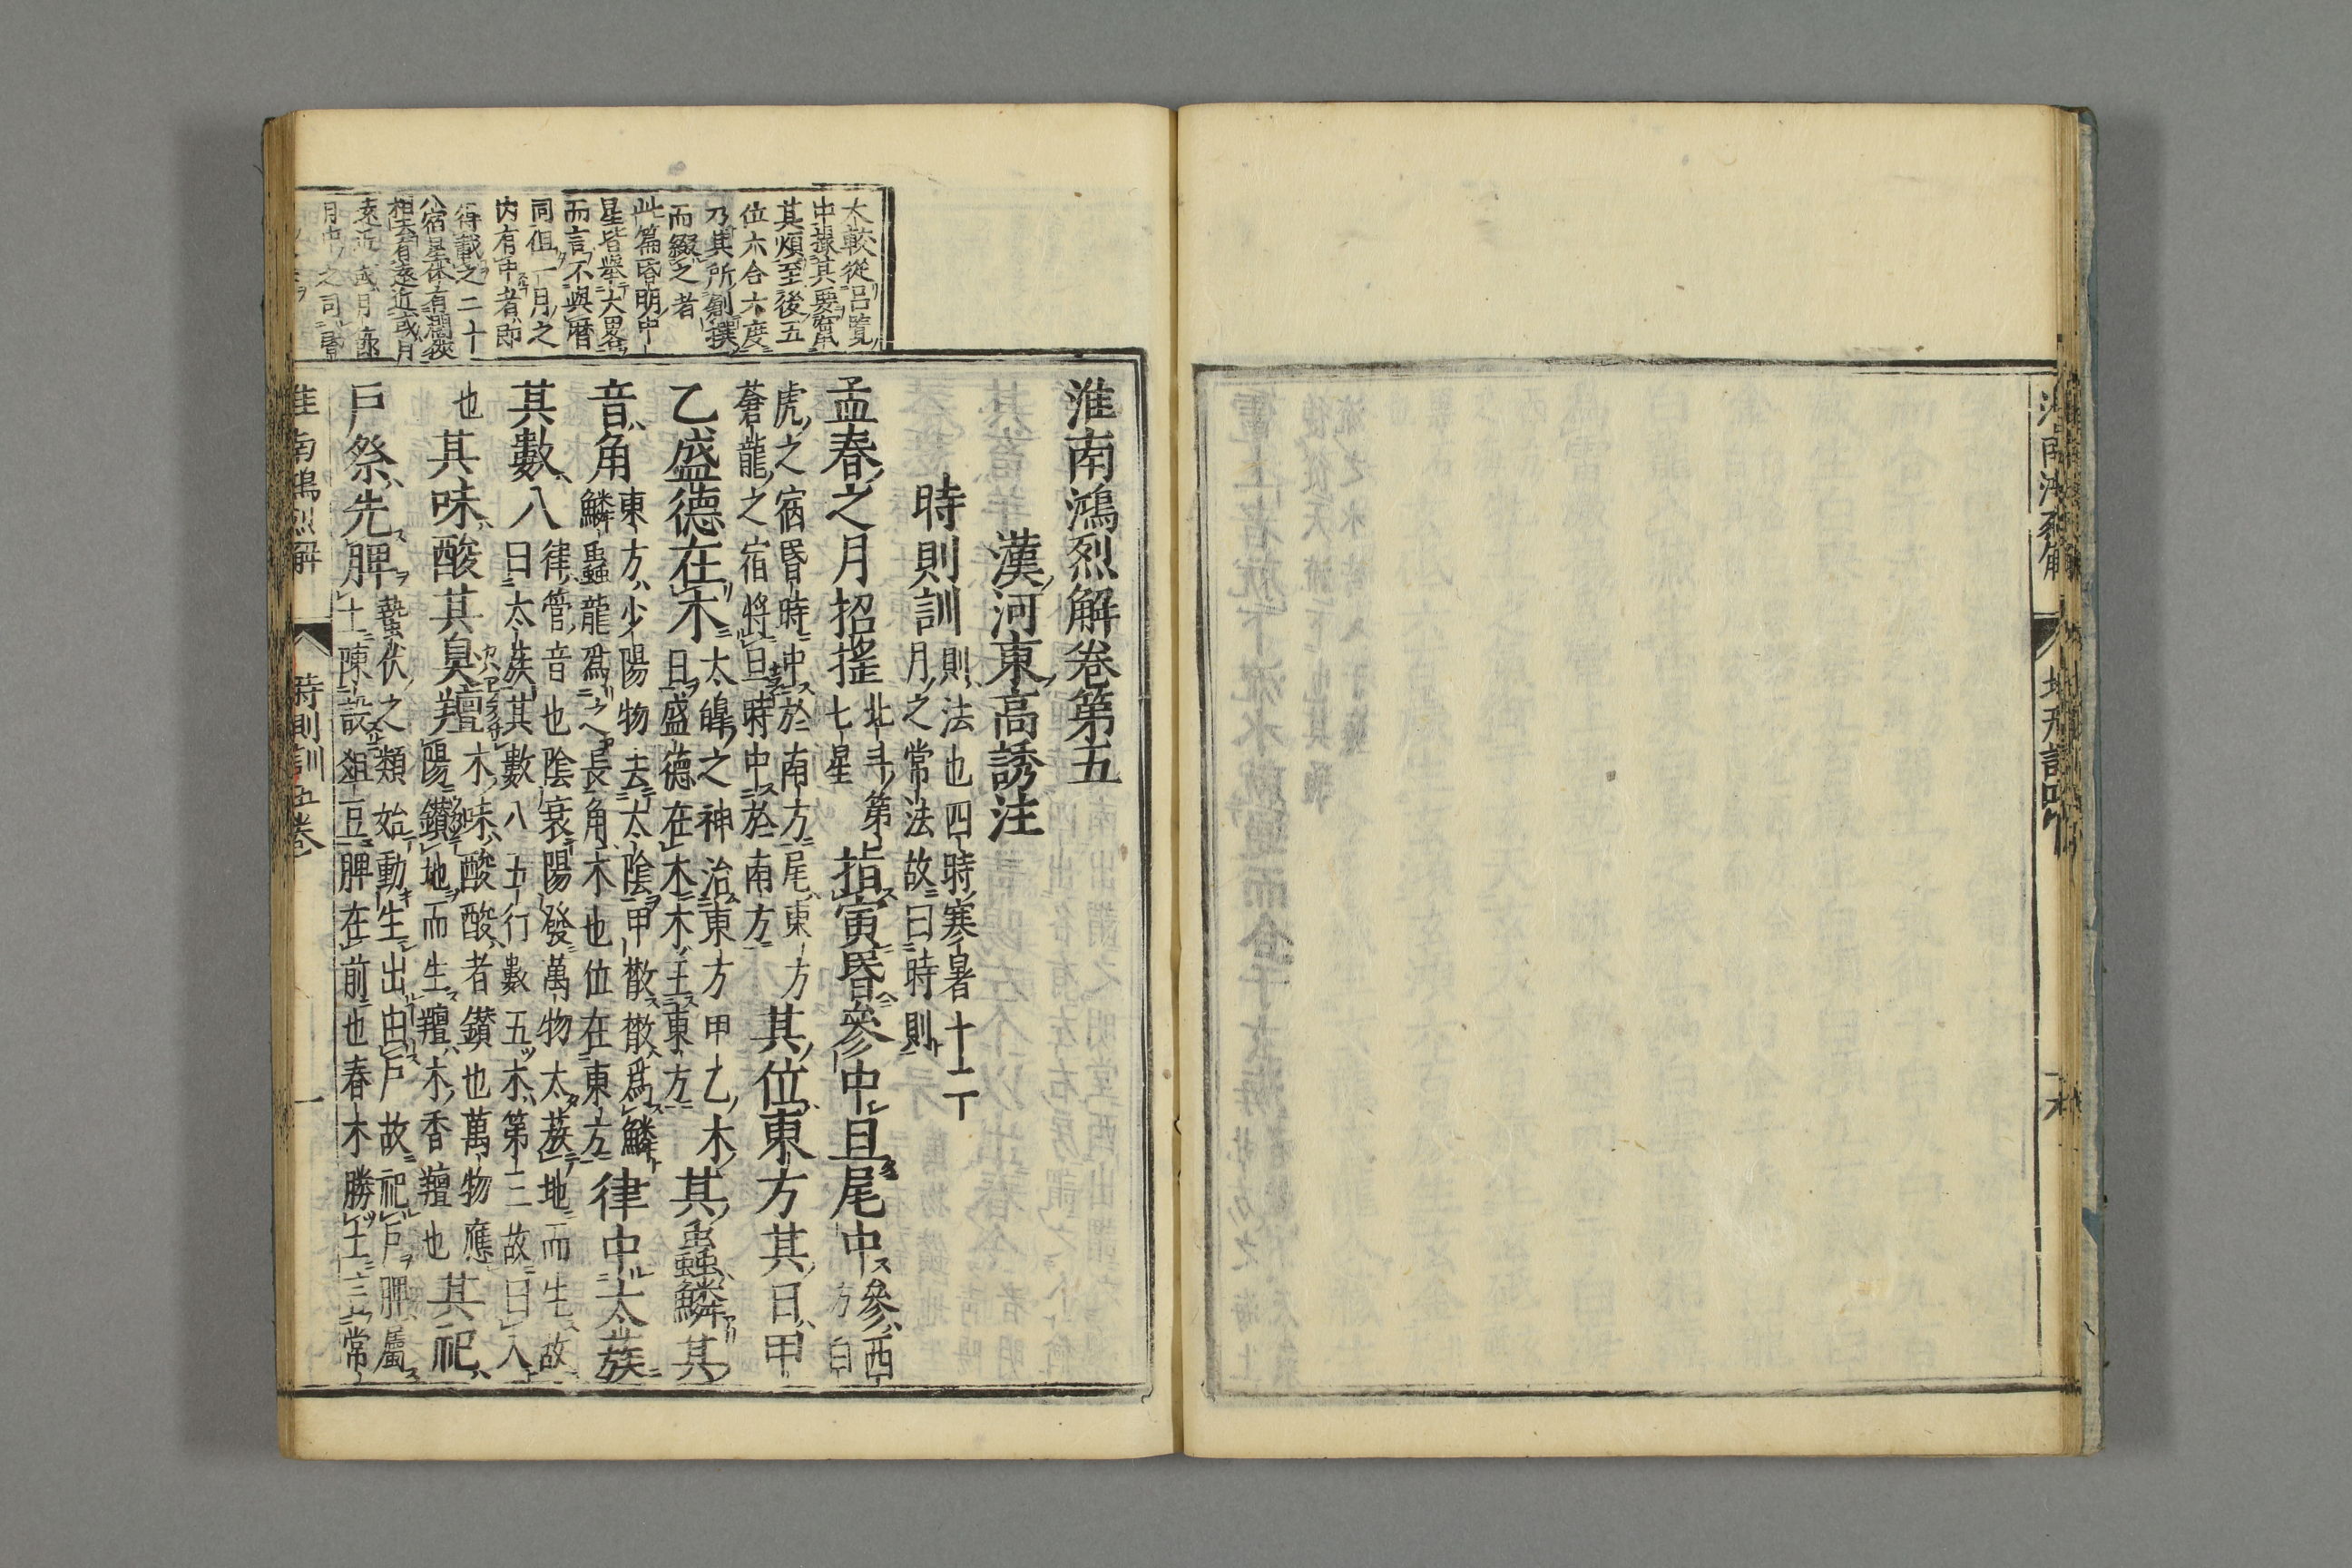 淮南鴻烈解卷第五
漢河東高誘注
時則訓 則法也四時寒暑十二
月之常法故曰時則
孟春之月招搖 北斗第
七星 指寅昏參中旦尾中 參西
方白
虎之宿昏時中於南方尾東方
蒼龍之宿將旦時中於南方 其位東方其日甲
乙盛德在木 太皥之神治東方甲乙木
日盛德在木木王東方 其蟲鱗其
音角 東方少陽物去太陰甲散散爲鱗
鱗蟲龍爲之長角木也位在東方 律中太蔟
其數八 律管音也陰衰陽發萬物太蔟地而生故
曰太蔟其數八五行數五木第三故曰八
也 其味酸其臭羶 木味酸酸者鑽也萬物應
陽鑽地而生羶木香羶也 其祀
戶祭先脾 蟄伏之類始動生出由戶故祀戶脾屬
土陳設俎豆脾在前也春木勝土言常
淮南鴻烈解 時則訓五卷 一
太較從呂覽
中據其要實
其煩至後五
位六合六度
乃其所創撰
而綴之者
此篇昏明中
星皆舉大畧
而言不與曆
同但一月之
内有中者即
得載之二十
八宿星体有濶狹
相去有遠近或月
月中之司昬